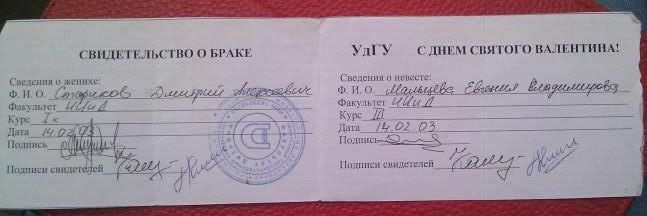 СВИДЕТЕЛЬСТВО О БРАКЕ
Сведения о женихе:
Ф. И. О. Стариков Дмитрий Алексеевич
Факультет ИИиД
Курс I
Дата 14.02.03
Подпись
Подписи свидетелей
УдГУ С ДНЕМ СВЯТОГО ВАЛЕНТИНА!
Сведения о невесте:
Ф. И. О. Мальцева Евгения Владимировна
Факультет ИИиД
Курс III
Дата 14.02.03
Подпись
Подписи свидетелей